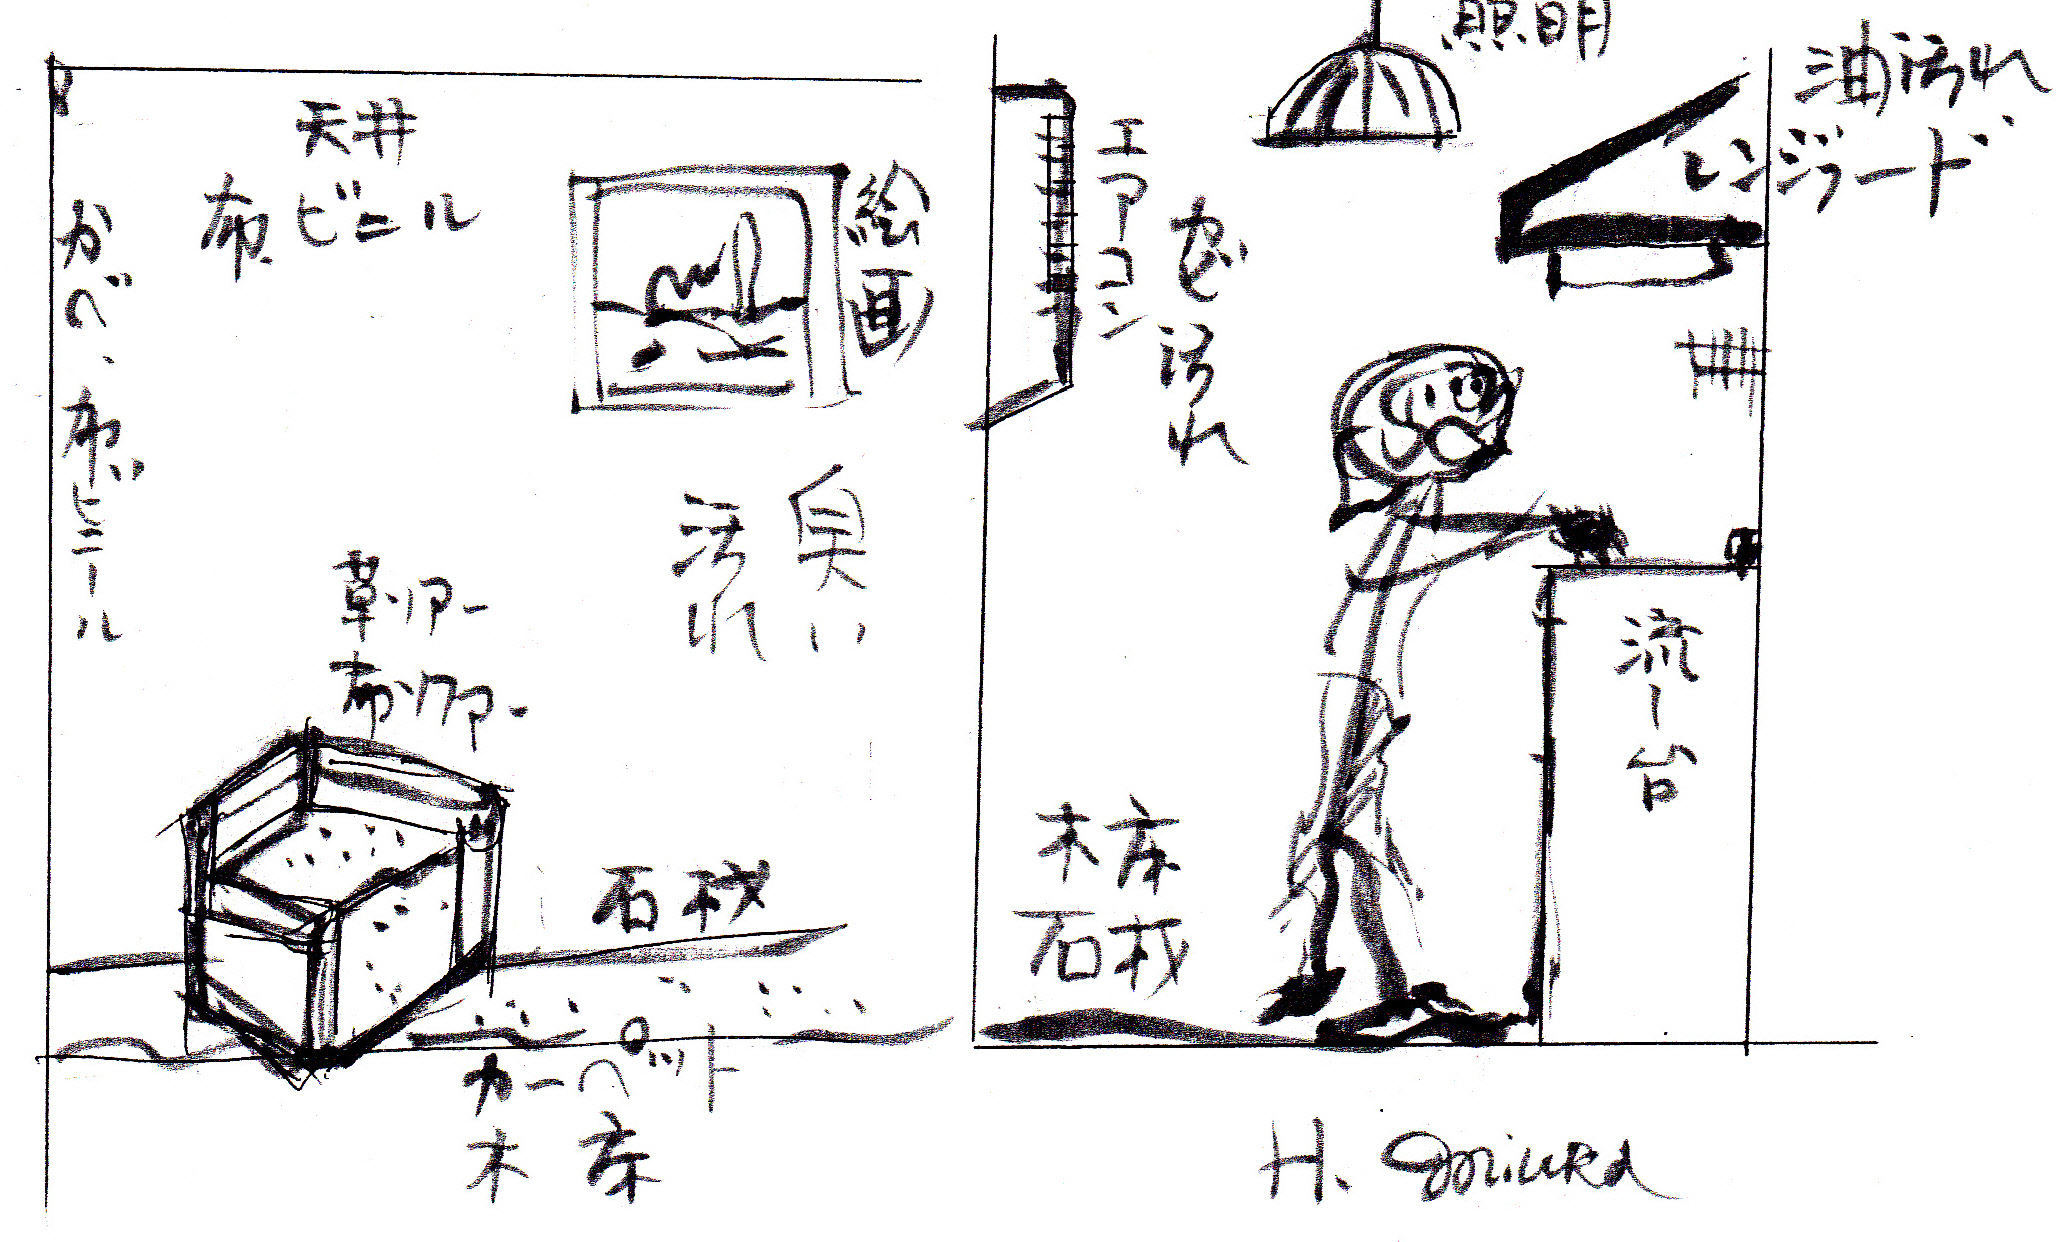 天井
布.ビニル
かべ、布ビニール
絵画
臭い
汚れ
革ソファー
布ソファー
石材
カーペット
木床
照明
油汚れ
レンジフード
エアコン
かび汚れ
流し台
木床
石材
H. Miura